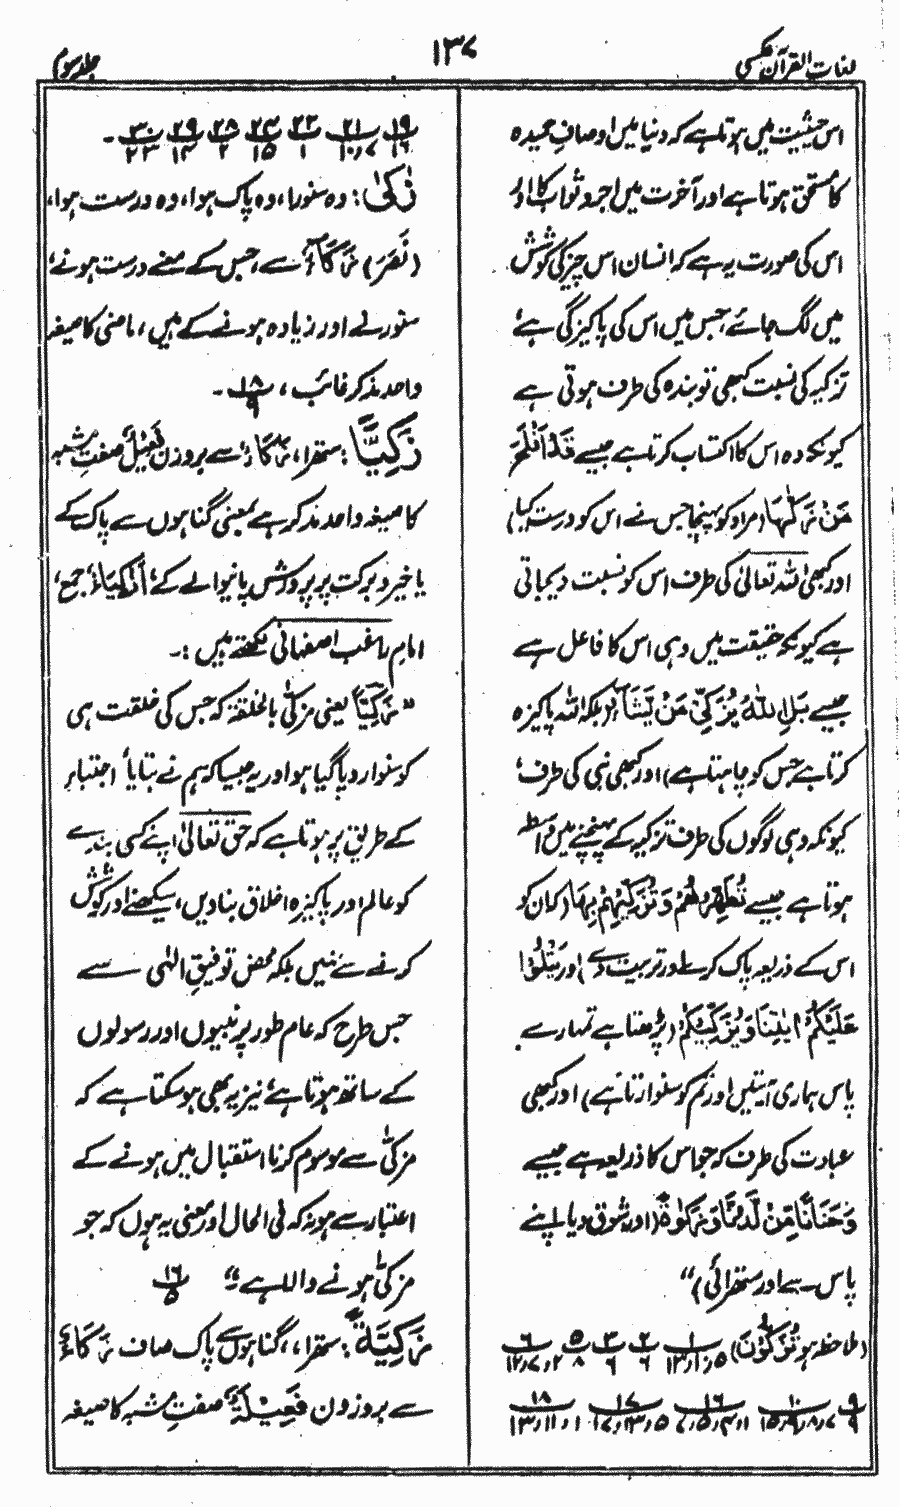 لغات القرآن عکسی
۱۳۷
جلد سوم
اس حیثیت میں ہوتا ہے کہ دنیا میں اوصافِ حمیدہ
کا مستحق ہوتا ہے اور آخرت میں اجر و ثواب کا اور
اس کی صورت یہ ہے کہ انسان اس چیز کی کوشش
میں لگ جائے، جس میں اس کی پاکیزگی ہے
تزکیہ کی نسبت کبھی تو بندہ کی طرف ہوتی ہے
کیونکہ وہ اس کا اکتساب کرتا ہے جیسے قَدْ اَفْلَحَ
مَنْ زَكّٰىهَا (مراد کو پہنچا جس نے اس کو درست کیا)
اور کبھی اللہ تعالیٰ کی طرف اس کو نسبت دیجاتی
ہے کیونکہ حقیقت میں وہی اس کا فاعل ہے
جیسے بَلِ اللّٰهُ يُزَكِّيْ مَنْ يَّشَآءُ (بلکہ اللہ پاکیزہ
کرتا ہے جس کو چاہتا ہے) اور کبھی نبی کی طرف
کیونکہ وہی لوگوں کی طرف تزکیہ کے پہنچنے میں واسطہ
ہوتا ہے جیسے تُطَهِّرُهُمْ وَتُزَكِّيْهِمْ بِهَا (کہ ان کو
اس کے ذریعہ پاک کرے اور تربیت دے) اور يَتْلُوْا
عَلَيْكُمْ اٰيٰتِنَا وَيُزَكِّيْكُمْ (پڑھتا ہے تمہارے
پاس ہماری آیتیں اور تم کو سنوارتا ہے) اور کبھی
عبادت کی طرف کہ جو اس کا ذریعہ ہے جیسے
وَحَنَانًا مِّنْ لَّدُنَّا وَزَكٰوةً (اور شوق دیا اپنے
پاس سے اور ستھرائی)“
(ملاحظہ ہو تُزَكُّوْنَ) ۱ ۲ ۳ ۵ ۶
۵ر۱ر۱۳ ۶ ۶ ۸ ۲ر۷ر۱۲
۹ ۱۰ ۱۶ ۱۷ ۱۸
۹ ۷ر۸ر۹ر۱۵ ۱ر۴ر۵ر۷ ۵ر۱۳ر۱۷ ۱ر۱۱ر۱۳
۱۹ ۲۱ ۲۲ ۲۴ ۲۸ ۲۹ ۳۰ -
۱۶ ۷ر۱۰ ۱ ۱۵ ۲ ۱۴ ۲۳
زَكٰى: وہ سنورا، وہ پاک ہوا، وہ درست ہوا،
(نَصَرَ) زَكَاءٌ سے، جس کے معنے درست ہونے،
سنورنے اور زیادہ ہونے کے ہیں، ماضی کا صیغہ
واحد مذکر غائب، ۱۸ -
۹
زَكِيًّا: ستھرا، زَكَاءٌ سے بروزن فَعِيْلٌ صفت مشبہ
کا صیغہ واحد مذکر ہے بمعنی گناہوں سے پاک کے
یا خیر و برکت پر پرورش پانیوالے کے اَزْكِيَاءُ جمع،
امام راغب اصفہانی لکھتے ہیں :-
”زَكِيًّا یعنی مزکّٰی بالخلقۃ کہ جس کی خلقت ہی
کو سنوار دیا گیا ہو اور یہ جیسا کہ ہم نے بتایا اجتباء
کے طریق پر ہوتا ہے کہ حق تعالیٰ اپنے کسی بندے
کو عالم اور پاکیزہ اخلاق بنا دیں، سیکھنے اور کوشش
کرنے سے نہیں بلکہ محض توفیقِ الٰہی سے
جس طرح کہ عام طور پر نبیوں اور رسولوں
کے ساتھ ہوتا ہے، نیز یہ بھی ہو سکتا ہے کہ
مزکّٰی سے موسوم کرنا استقبال میں ہونے کے
اعتبار سے ہو نہ کہ فی الحال اور معنی یہ ہوں کہ جو
مزکّٰی ہونے والا ہے“ ۱۶
۵
زَكِيَّةً: ستھرا، گناہوں سے پاک صاف زَكَاءٌ
سے بروزن فَعِيْلَةٌ صفتِ مشبہ کا صیغہ